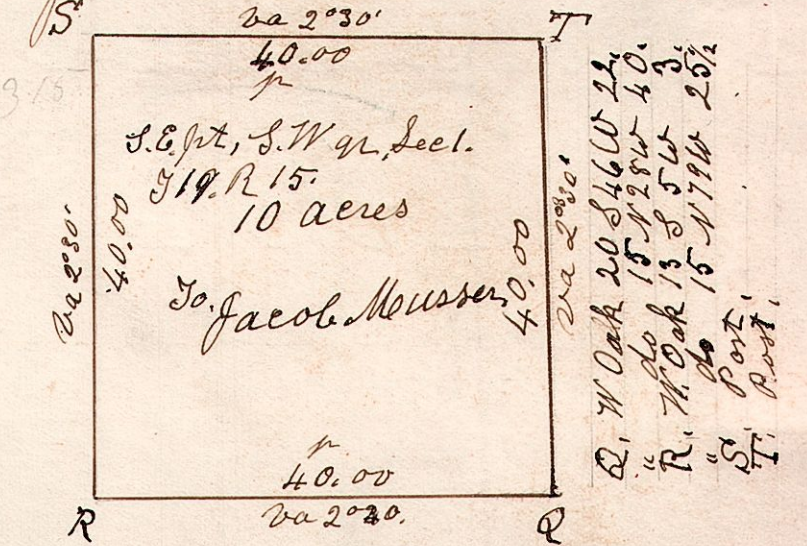 S
va 2°30'
T
40.00
p
S.E. pt, S.W qr, Sec 1.
T 19. R 15.
10 acres
To. Jacob Musser
va 2°30'
40.00
40.00
va 2°30'
p
40.00
va 2°30.
R
Q
Q. W Oak 20 S 46 W 22.
" do 15 N 28 W 40.
R. W. Oak 13 S 5 W 3.
" do 15 N 79 W 25½
S. Post.
T. Post.